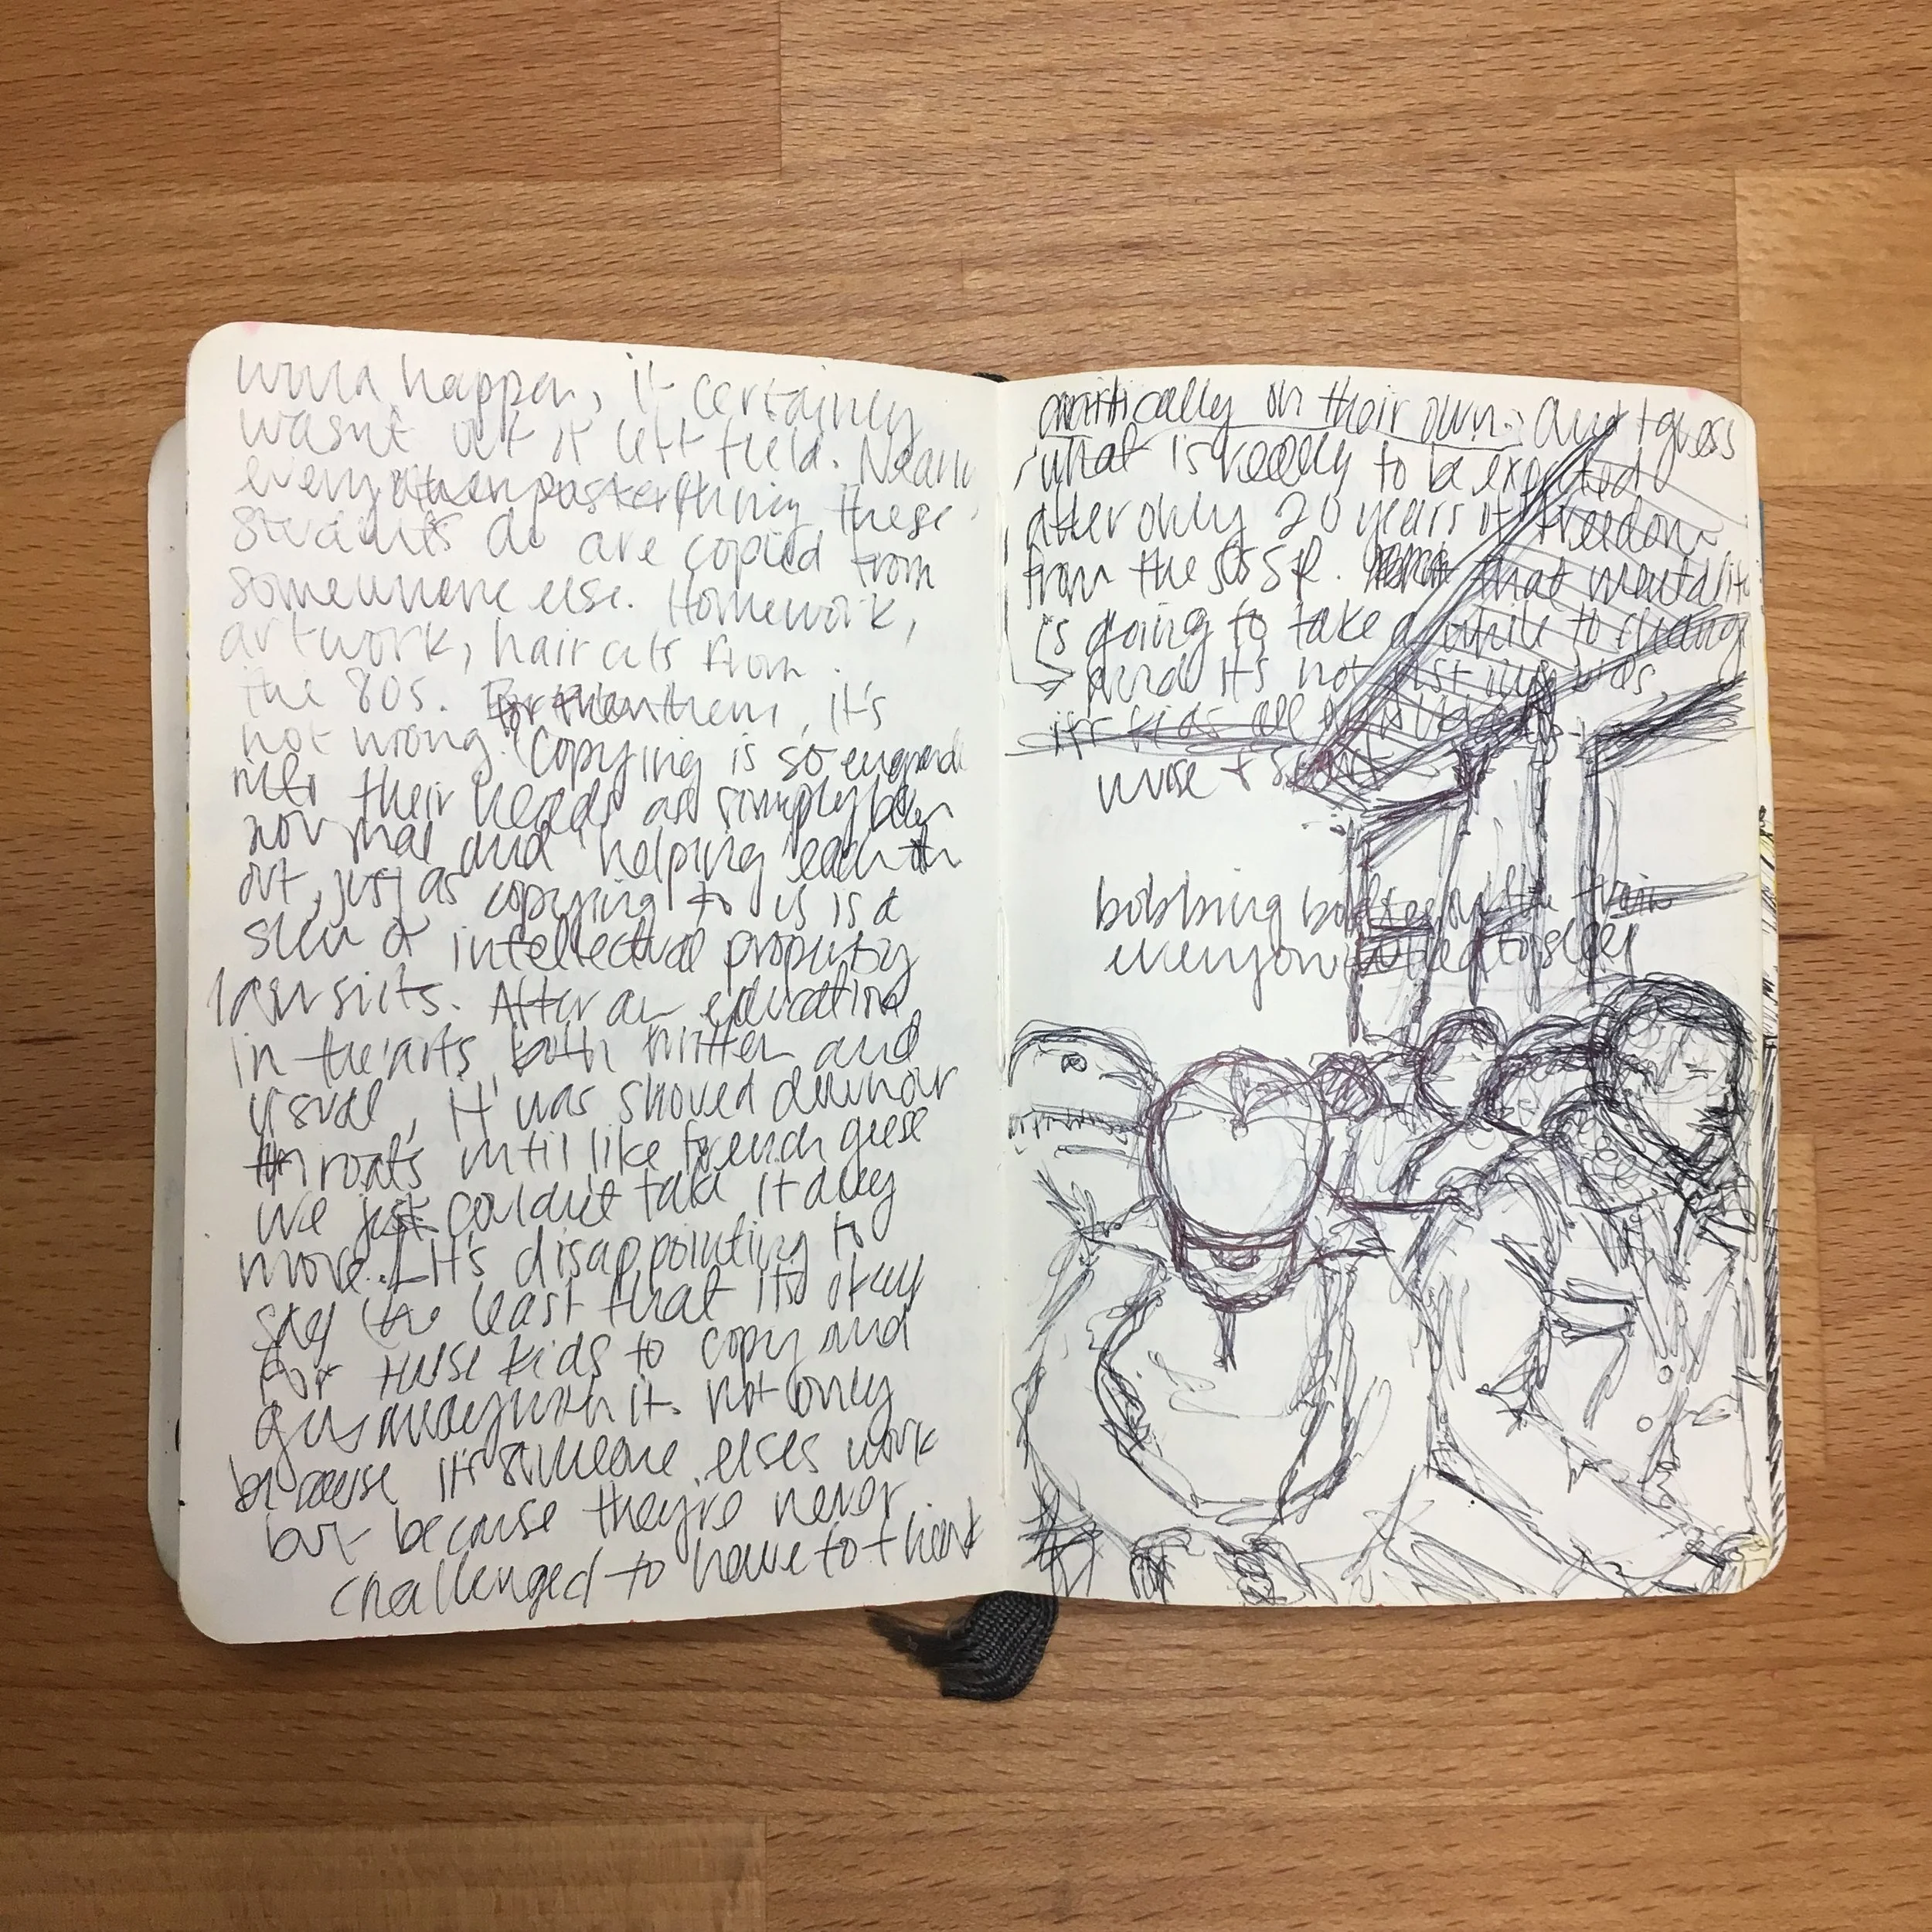 would happen, it certainly
wasn't out of left field. Nearly
everything these
students do are copied from
somewhere else. Homework,
artwork, haircuts from
the 80s. For them, it's
not wrong. Copying is so engrained
into their heads as simply been
normal and helping each oth
out, just as copying to us is a
slew of intellectual property
lawsuits. After an education
in the arts, both written and
visual, it was shoved down our
throats until like french geese
we just couldn't take it any
more. It's disappointing to
say the least that it's okay
for these kids to copy and
get away with it. Not only
because it's someone elses work
but because they're never
challenged to have to think
critically on their own. And I guess
what is really to be expected
after only 20 years of freedom
from the USSR. That mentality
is going to take a while to change
And it's not just my kids,
it's kids all
bobbing on the train
everyone tried to sleep